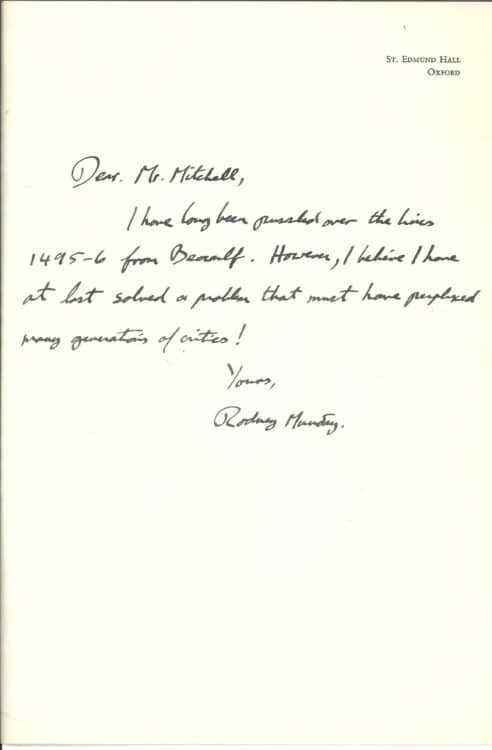 ST. EDMUND HALL
OXFORD
Dear. Mr. Mitchell,
I have long been puzzled over the lines
1495-6 from Beowulf. However, I believe I have
at last solved a problem that must have perplexed
many generations of critics!
Yours,
Rodney Munday.